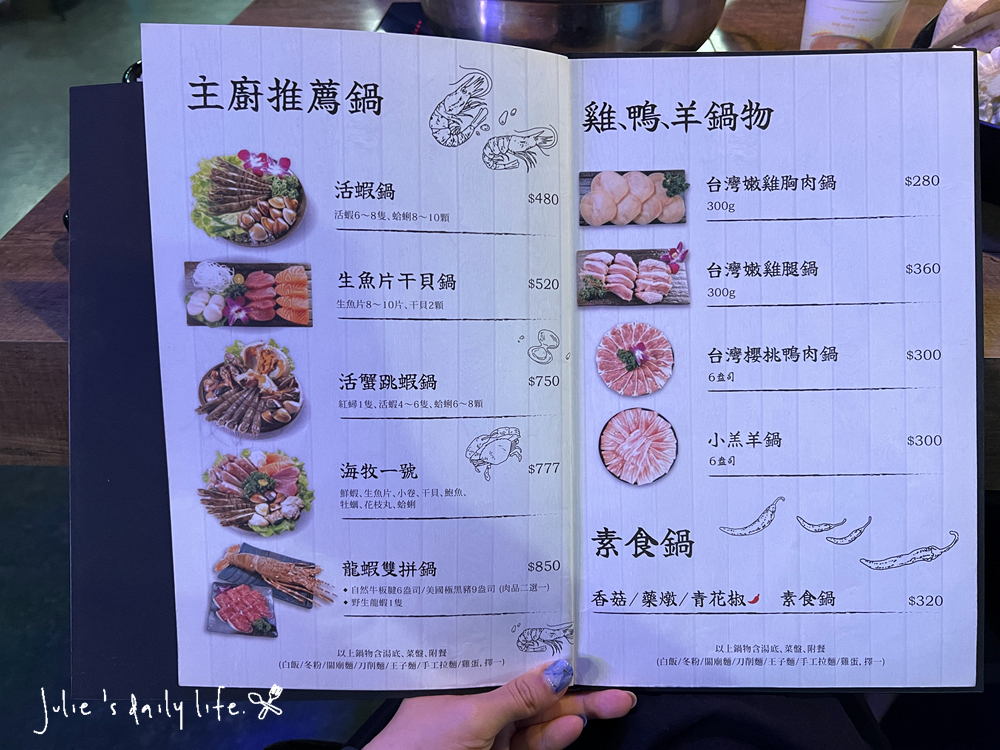 主廚推薦鍋
活蝦鍋 $480
活蝦6～8隻、蛤蜊8～10顆
生魚片干貝鍋 $520
生魚片8～10片、干貝2顆
活蟹跳蝦鍋 $750
紅蟳1隻、活蝦4～6隻、蛤蜊6～8顆
海牧一號 $777
鮮蝦、生魚片、小卷、干貝、鮑魚、
牡蠣、花枝丸、蛤蜊
龍蝦雙拼鍋 $850
◆ 自然牛板腱6盎司/美國極黑豬9盎司 (肉品二選一)
◆ 野生龍蝦1隻
以上鍋物含湯底、菜盤、附餐
(白飯/冬粉/關廟麵/刀削麵/王子麵/手工拉麵/雞蛋, 擇一)
雞、鴨、羊鍋物
台灣嫩雞胸肉鍋 $280
300g
台灣嫩雞腿鍋 $360
300g
台灣櫻桃鴨肉鍋 $300
6盎司
小羔羊鍋 $300
6盎司
素食鍋
香菇/藥燉/青花椒 素食鍋 $320
以上鍋物含湯底、菜盤、附餐
(白飯/冬粉/關廟麵/刀削麵/王子麵/手工拉麵/雞蛋, 擇一)
Julie's daily life.